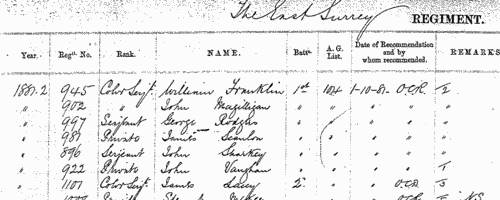 The East Surrey REGIMENT.
Year. Regtl. No. Rank. NAME. Batn. A. G. List. Date of Recommendation and by whom recommended. REMARKS
1881-2 945 Color Serjt. William Franklin 1st 104 1-10-81- O.C.R. 2
" 902 " John Magilligan " " " " "
" 997 Serjeant George Rodgers " " " " "
" 981 Private James Scanlon " " " " "
" 896 Serjeant John Sharkey " " " " "
" 922 Private John Vaughan " " " " 1
" 1101 Color Serjt. James Lacey 2. " " O.C.R. 3